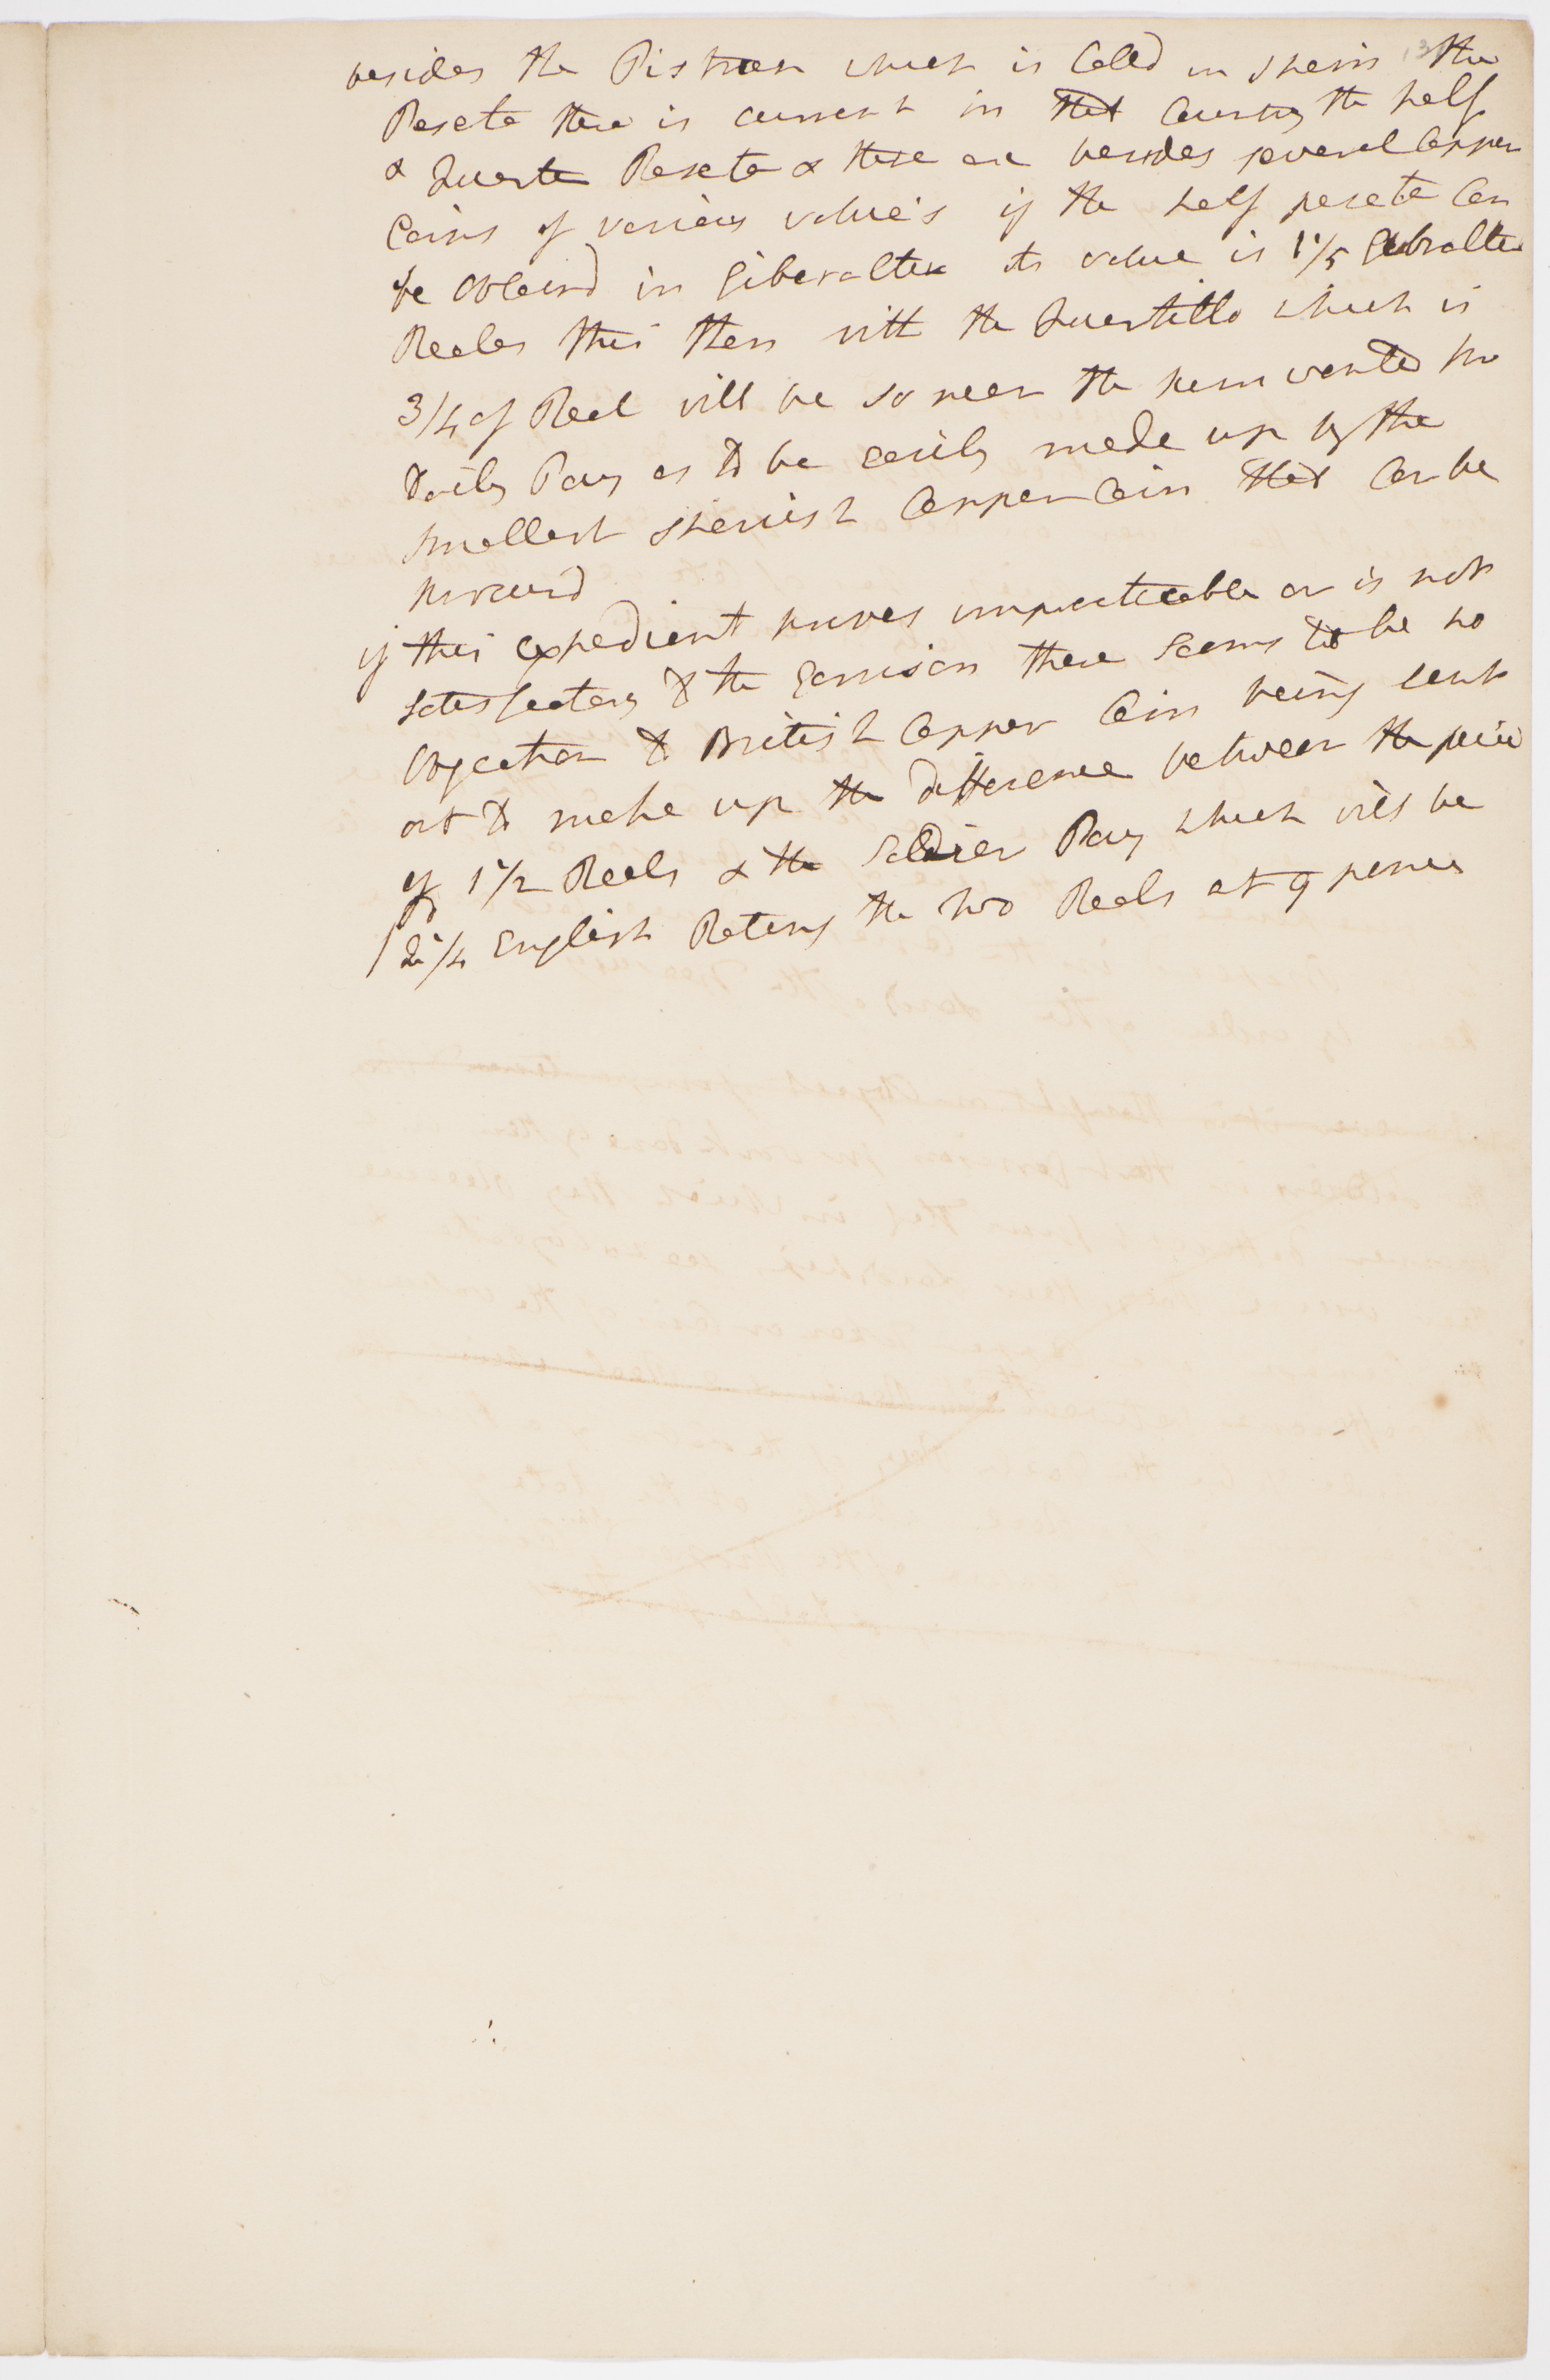 besides the Pistreen which is Caled in Spain the
Peseta there is current in that Country the half
& Quarter Peseta & there are besides several Copper
Coins of various value's if the half peseta Can
be obtaind in Giberalter its value is 1 1/5 Gibralter
Reales this then with the Quartillo which is
3/4 of Real will be so near the sum wanted for
daily Pay as to be easily made up by the
smallest Spanish Copper Coin that Can be
procurd
if this expedient proves impracticable or is not
satisfactory to the Garrison there seems to be no
Objection to British Copper Coin being sent
out to make up the difference between the peice
of 1 1/2 Reals & the Soldier Pay which will be
2 1/4 English Rating the two Reals at 9 pence